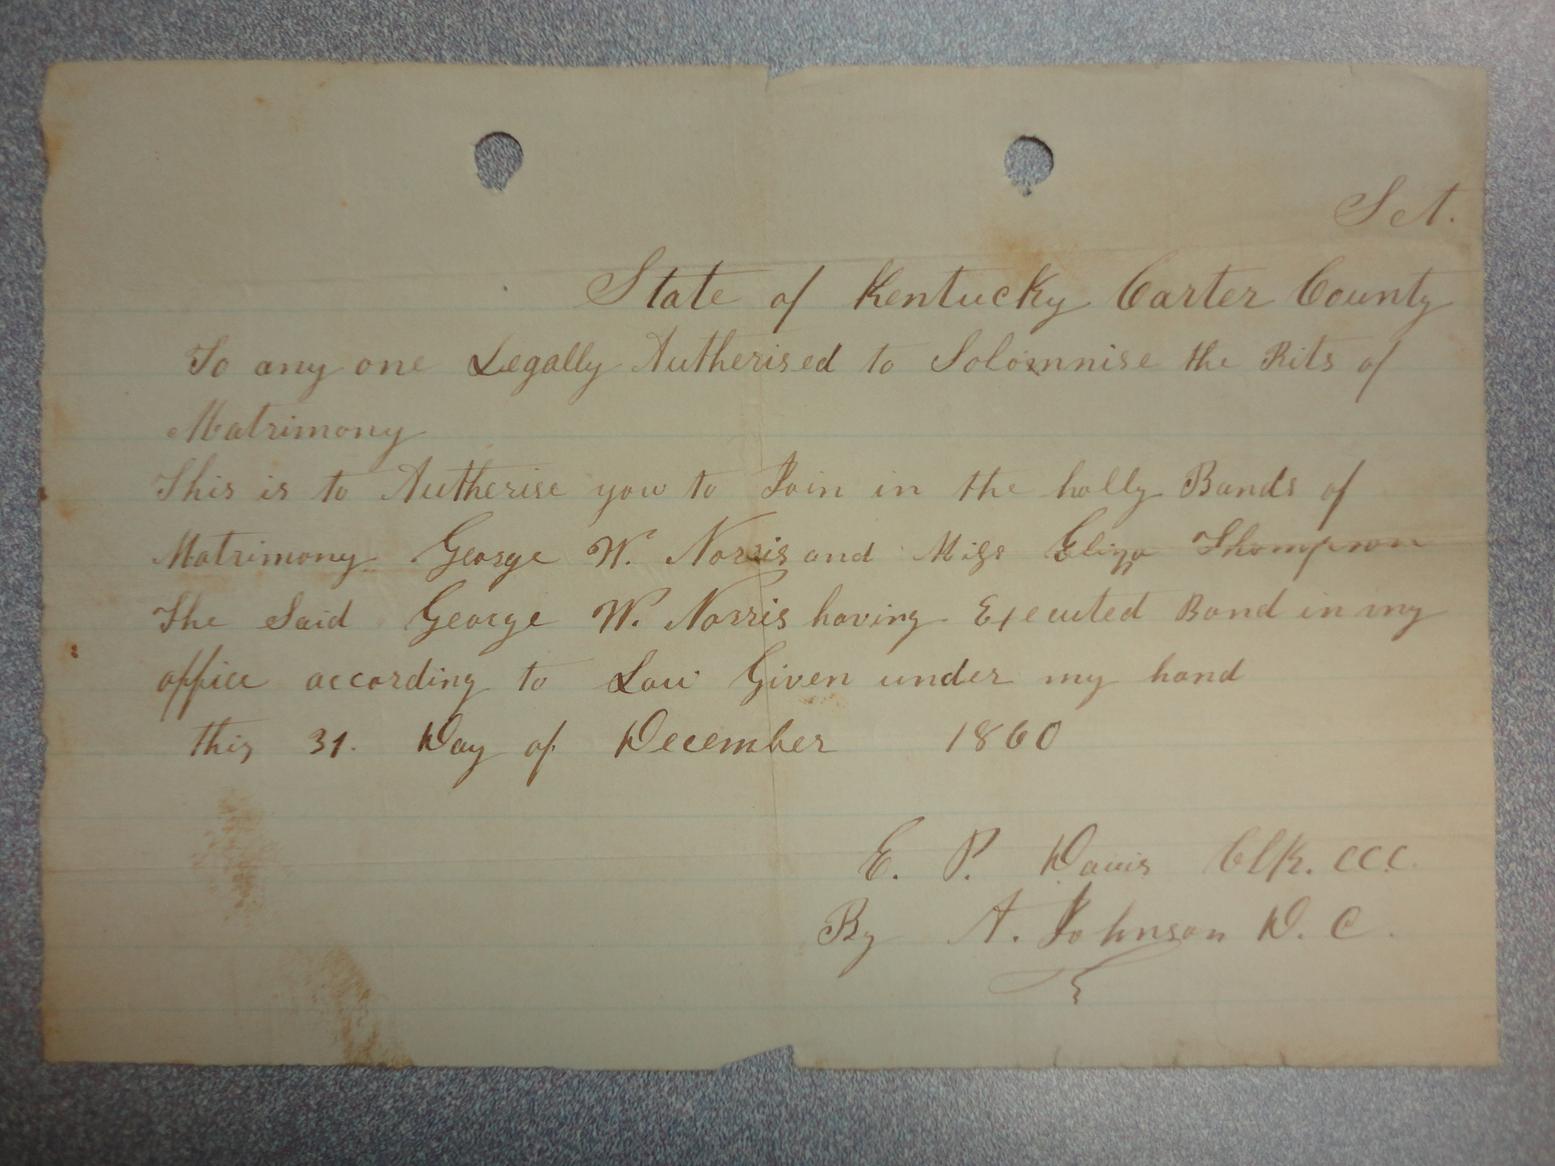 Sct.
State of Kentucky Carter County
To any one Legally Autherised to Solomnise the Rits of
Matrimony
This is to Autherise you to Join in the holly Bands of
Matrimony George W. Norris and Miss Eliza Thompson
The Said George W. Norris having Executed Bond in my
office according to Law Given under my hand
this 31. Day of December 1860
E. P. Davis Clk. CCC.
By A. Johnson D. C.